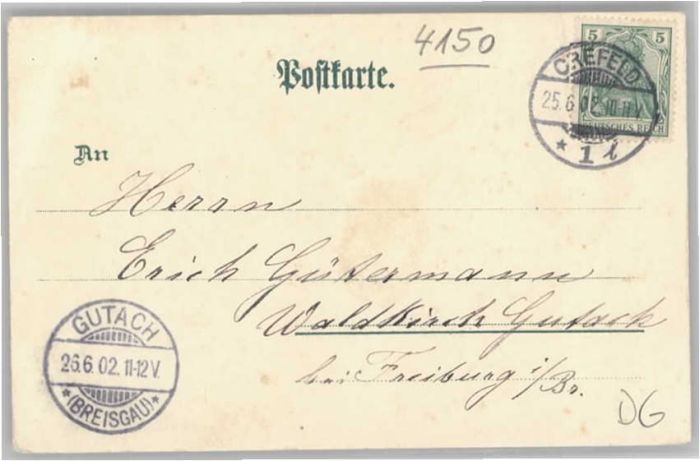 4150
Postkarte.
5 5
DEUTSCHES REICH
CREFELD
25.6.02. 10-11V.
* 1 l
An
Herrn
Erich Gütermann
Waldkirch Gutach
bei Freiburg i/Br.
GUTACH
26.6.02.11-12V.
*(BREISGAU)*
DG